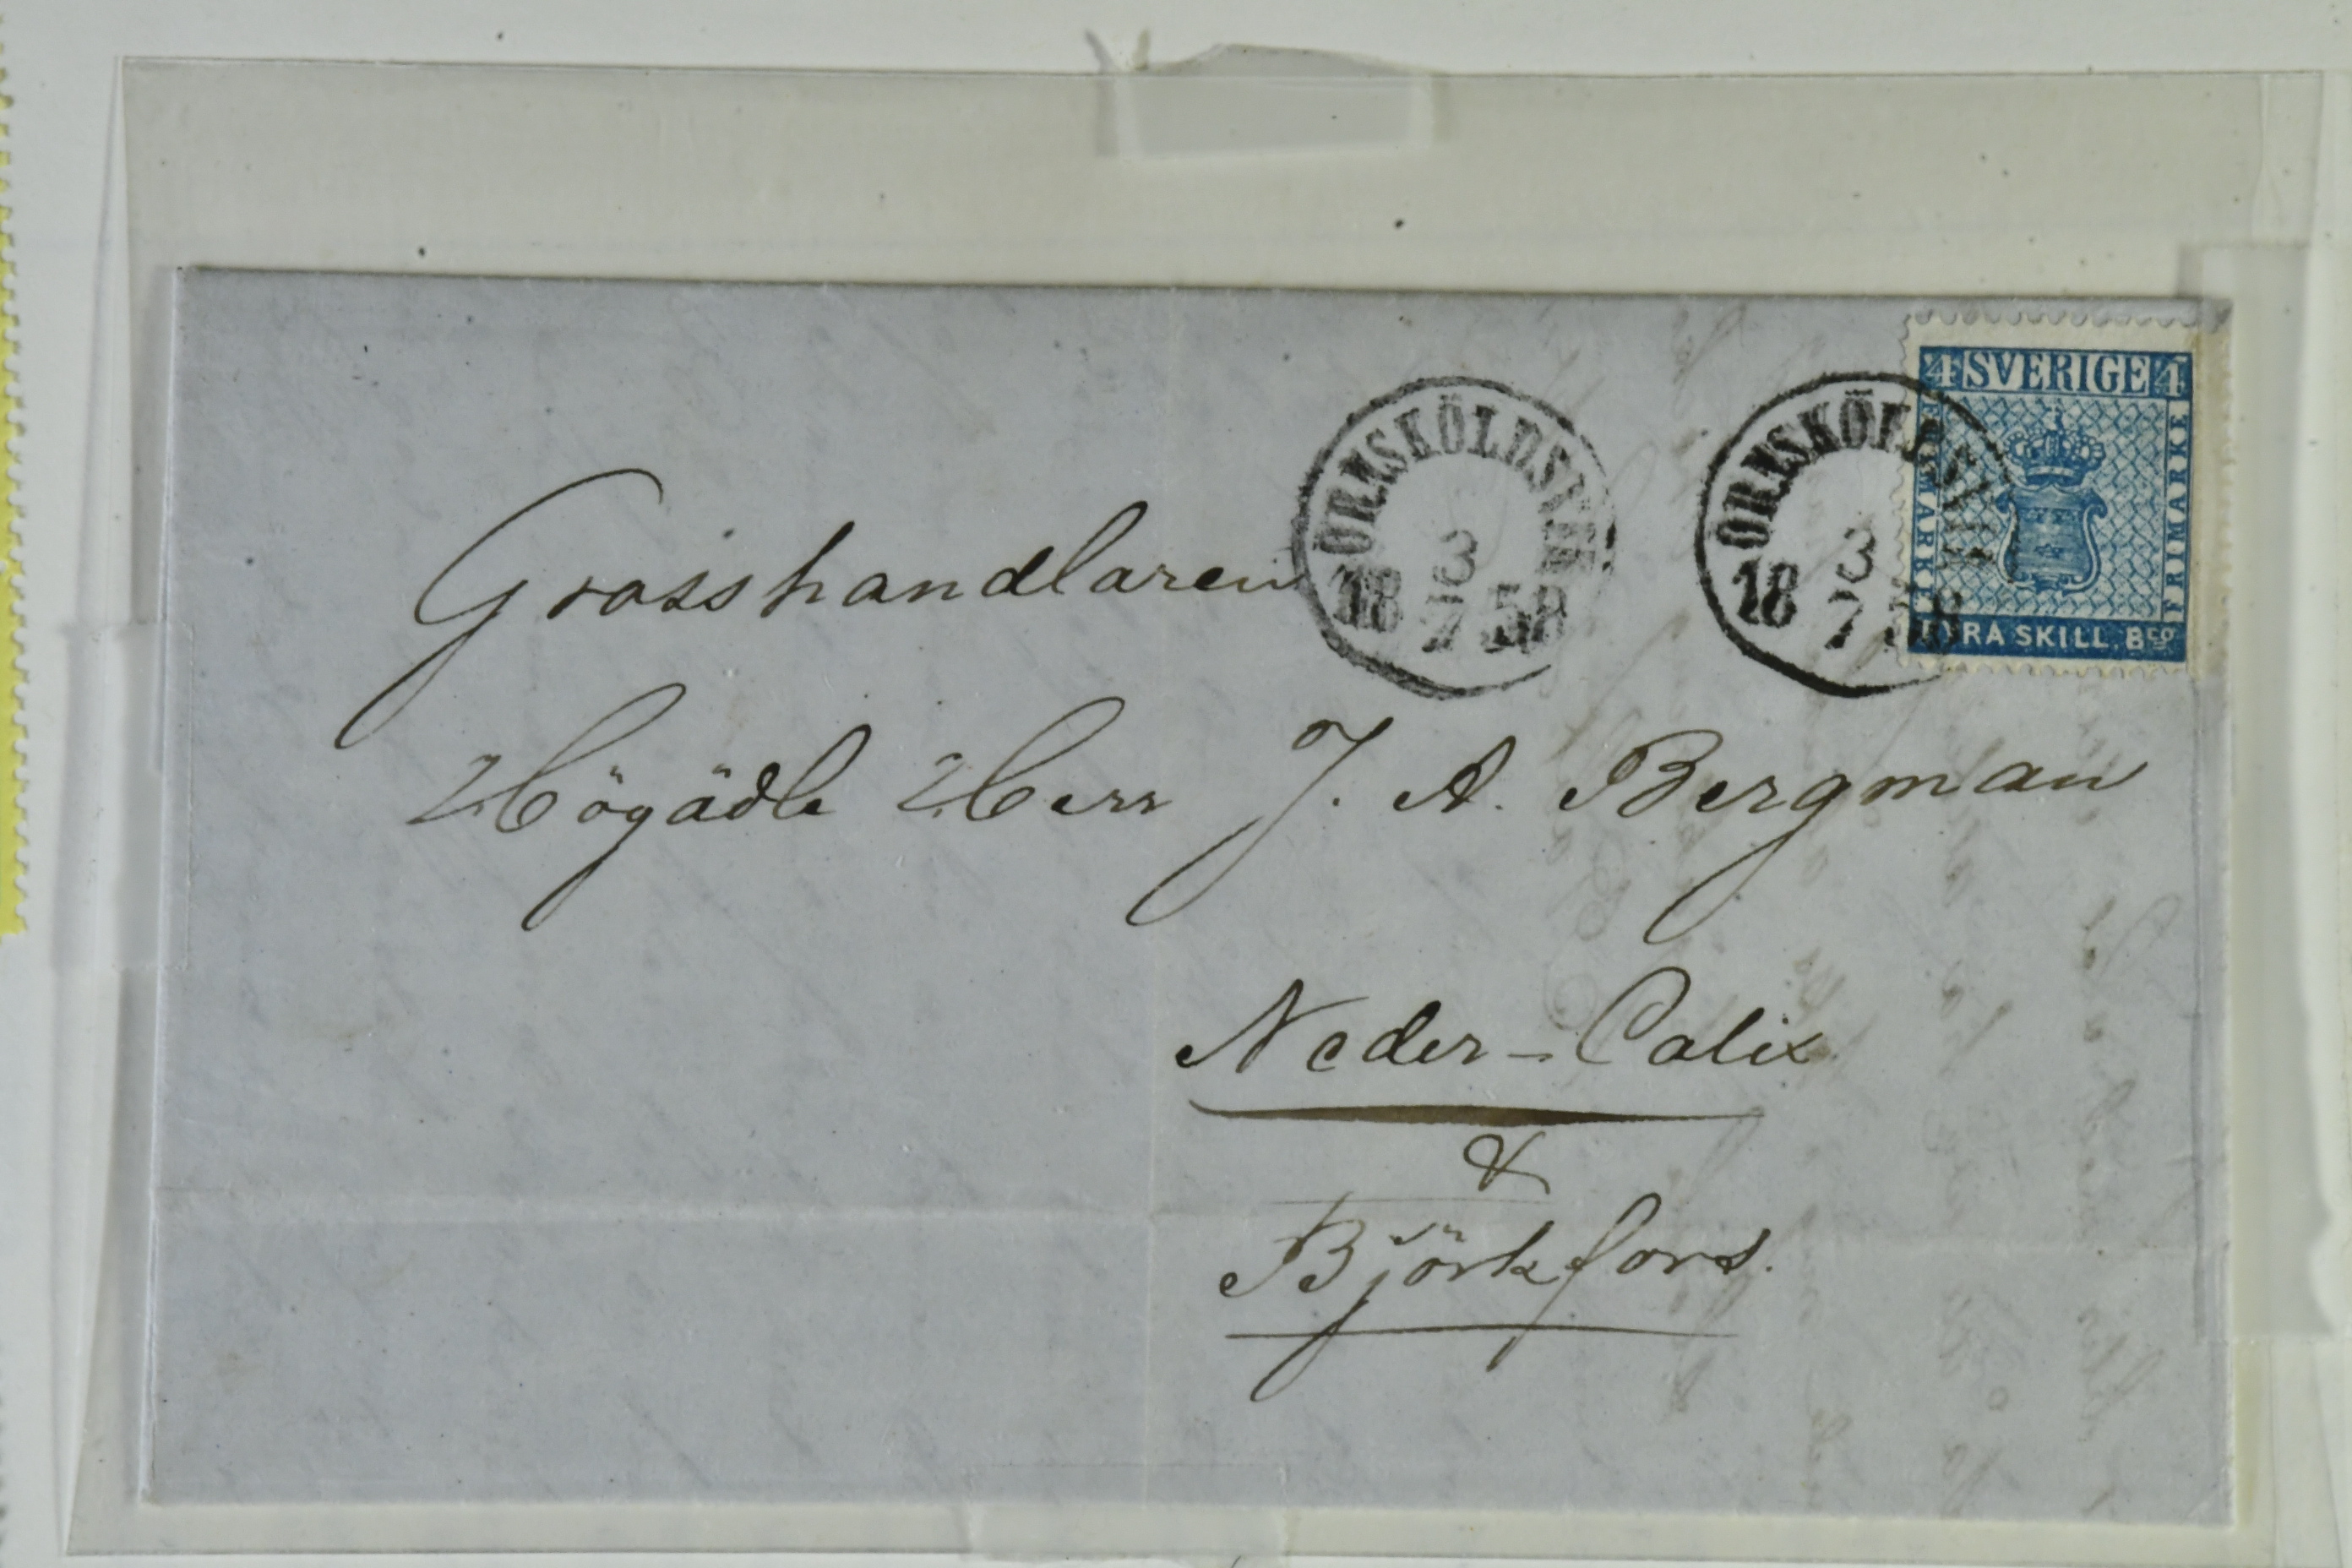 4 SVERIGE 4
FRIMÄRKE
FRIMÄRKE
FYRA SKILL. Bco
ÖRNSKÖLDSVIK
3
18 7 58
ÖRNSKÖLDSVIK
3
18 7 58
Grosshandlaren
Högädle Herr J. A. Bergman
Neder-Calix
&
Björkfors.